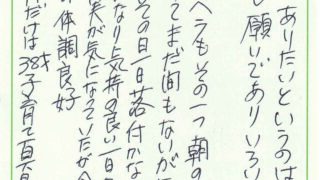 ありたいというのは
願いでありいろい
ヘラもその一つ朝の
てまだ間もないが
その日一日落付かな
なり気持の良い一日
実が気になっていたが
体調良好
だけは38才子育て